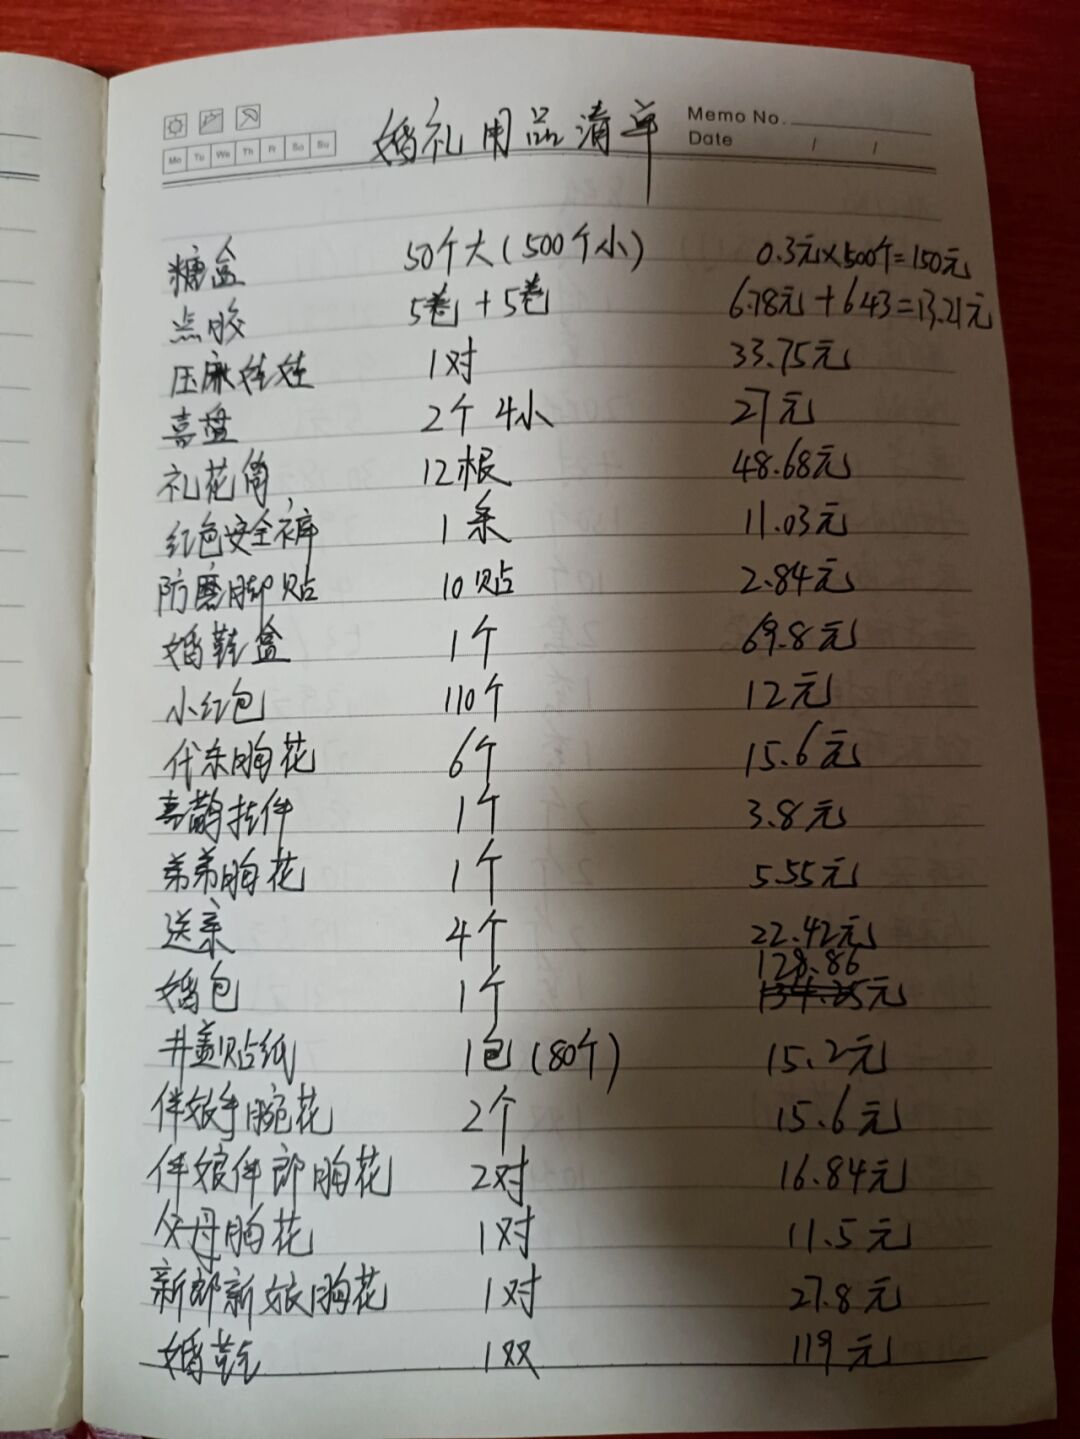 Memo No.
Mo Tu We Th Fr Sa Su
Date / /
婚礼用品清单
糖盒 50个大(500个小) 0.3元×500个=150元
点胶 5卷+5卷 6.78元+6.43=13.21元
压床娃娃 1对 33.75元
喜盘 2个 4小 27元
礼花筒 12根 48.68元
红色安全裤 1条 11.03元
防磨脚贴 10贴 2.84元
婚鞋盒 1个 69.8元
小红包 110个 12元
代东胸花 6个 15.6元
喜鹊挂件 1个 3.8元
弟弟胸花 1个 5.55元
送亲 4个 22.42元
128.86
婚包 1个 134.25元
井盖贴纸 1包(80个) 15.2元
伴娘手腕花 2个 15.6元
伴娘伴郎胸花 2对 16.84元
父母胸花 1对 11.5元
新郎新娘胸花 1对 27.8元
婚鞋 1双 119元